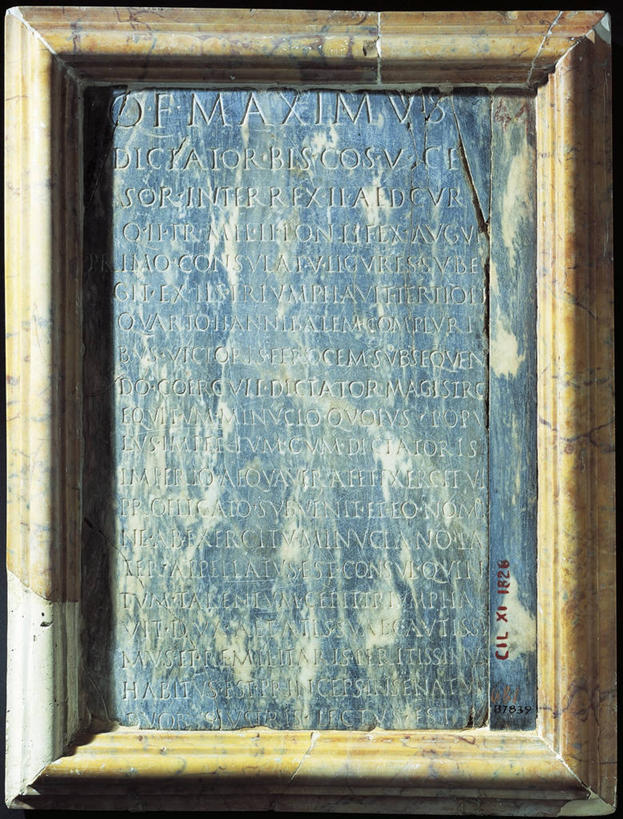 Q·F·MAXIMVS
DICTATOR·BIS·COS·V·CE
SOR·INTERREX·II·AED·CVR
Q·II·TR·MIL·II·PONTIFEX·AVGV
PRIMO·CONSVLATV·LIGVRES·SVBE
GIT·EX·IIS·TRIVMPHAVIT·TERTIO·E
QVARTO·HANNIBALEM·COMPLVRI
BVS·VICTORIS·FEROCEM·SVBSEQVEN
DO·COERCVIT·DICTATOR·MAGISTRO
EQVITVM·MINVCIO·QVOIVS·POPV
LVS·IMPERIVM·CVM·DICTATORIS
IMPERIO·AEQVAVERAT·ET·EXERCITV
PROFLIGATO·SVBVENIT·ET·EO·NOMI
NE·AB·EXERCITV·MINVCIANO·PA
TER·APPELLATVS·EST·CONSVL·QVIN
TVM·TARENTVM·CEPIT·TRIVMPHA
VIT·DVX·AETATIS·SVAE·CAVTISSI
MVS·ET·REI·MILITARIS·PERITISSIMVS
HABITVS·EST·PRINCEPS·IN·SENATVM
DVOBVS·LVSTRIS·LECTVS·EST
CIL XI 1828
87839